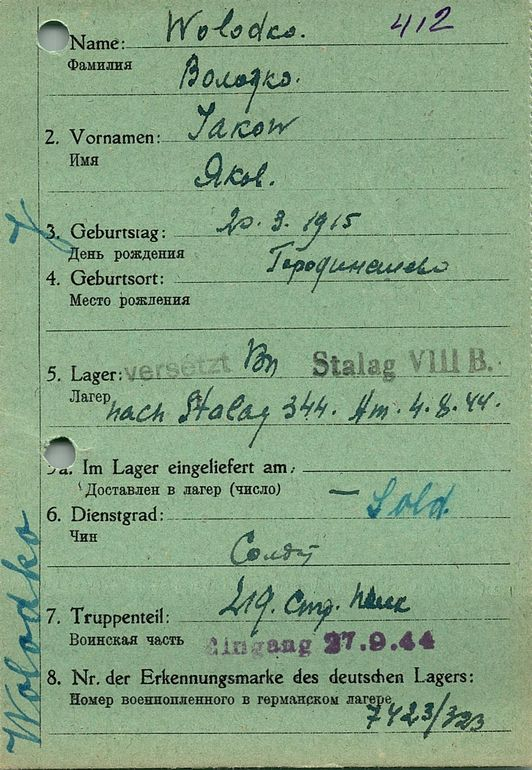 412
Name: Wolodko.
Фамилия
Володко.
2. Vornamen: Jakow
Имя
Яков.
3. Geburtstag: 20. 3. 1915
День рождения
4. Geburtsort:
Место рождения
versetzt Stalag VIII B.
5. Lager:
Лагер nach Stalag 344. Am. 4. 8. 44.
a. Im Lager eingeliefert am:
Доставлен в лагер (число)
6. Dienstgrad: – Sold.
Чин
Солдт
219. Стр. полк
7. Truppenteil:
Воинская часть Eingang 27.9.44
8. Nr. der Erkennungsmarke des deutschen Lagers:
Номер военнопленного в германском лагере
7423/323
Wolodko